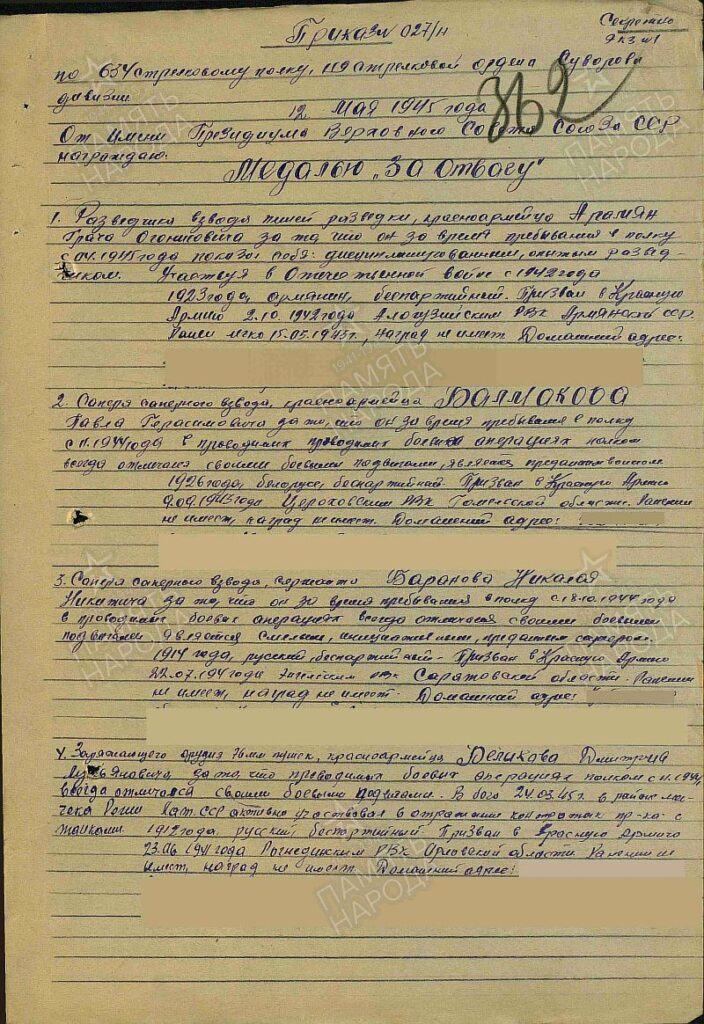 Приказ № 027/н
Секретно
Экз №1
по 634 стрелковому полку, 119 стрелковой ордена Суворова
дивизии
12 Мая 1945 года
362
От имени Президиума Верховного Совета Союза ССР
награждаю:
Медалью „За Отвагу"
1. Разведчика взвода пешей разведки, красноармейца Арамян
за то, что он за время пребывания в полку
с 04.1945 года показал себя: дисциплинированным, смелым развед-
чиком. Участвуя в Отечественной войне с 1942 года
1923 года, армянин, беспартийный. Призван в Красную
Армию 2.10.1942 года РВК Армянской ССР.
Ранен легко 15.05.1943 г., наград не имеет. Домашний адрес:
2. Сапера саперного взвода, красноармейца Балмакова
Павла Герасимовича за то, что он за время пребывания в полку
с 11.1944 года в проводимых проводимых боевых операциях полком
всегда отличался своими боевыми подвигами, является преданным воином
1926 года, белорус, беспартийный. Призван в Красную Армию
9.09.1943 года РВК Томской области. Ранений
не имеет, наград не имеет. Домашний адрес:
3. Сапера саперного взвода, сержанта Баранова Николая
Никитича за то, что он за время пребывания в полку с 18.10.1944 года
в проводимых боевых операциях всегда отличался своими боевыми
подвигами является смелым, инициативным, преданным сапером.
1914 года, русский, беспартийный. Призван в Красную Армию
22.07.1941 года РВК Саратовской области. Ранений
не имеет, наград не имеет. Домашний адрес:
4. Заряжающего орудия 76 мм пушек, красноармейца Белихова Дмитрия
за то, что проводимых боевых операциях полком с 11.1944,
всегда отличался своими боевыми подвигами. В бою 24.03.45 г. в районе мы-
Лат. ССР активно участвовал в отражении контратак пр-ка с
1912 года, русский, беспартийный Призван в Красную Армию
23.06.1941 года Рогнединским РВК Орловской области Ранений не
имеет, наград не имеет. Домашний адрес:
ПАМЯТЬ
НАРОДА